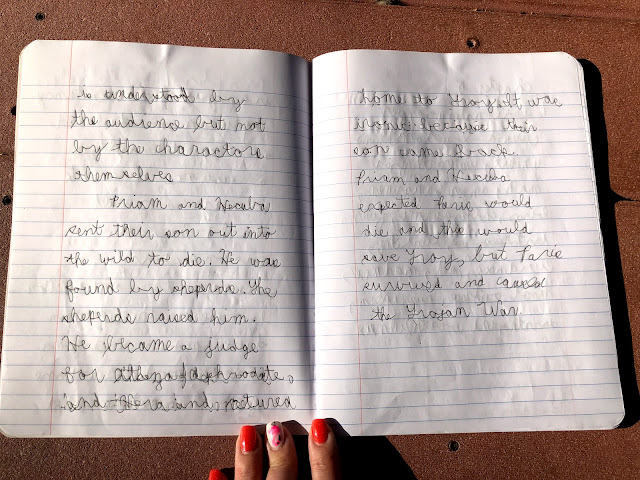 is understood by
the audience but not
by the charactors
themselves
Priam and Hecuba
sent their son out into
the wild to die. He was
found by sheperds. The
sheperds raised him.
He became a judge
for Athena, Aphrodite,
and Hera and returned
home to Troy. It was
ironic because their
son came back.
Priam and Hecuba
expected Paris would
die and this would
save Troy, but Paris
survived and caused
the Trojan War.